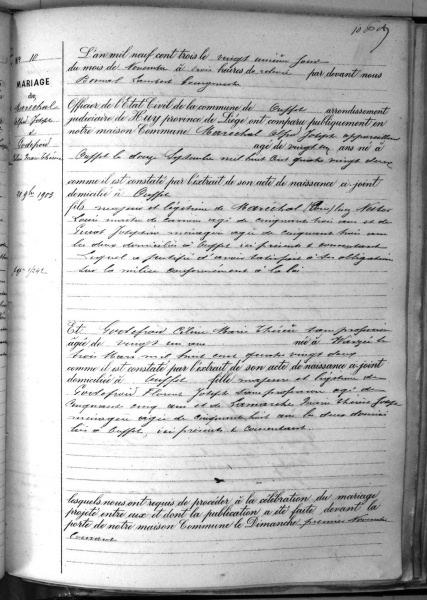 N° 10
MARIAGE
de
Maréchal
Joseph
&
Godefroid
Marie Thérèse
L'an mil neuf cent trois le vingt unième jour
du mois de Novembre à trois heures de relevée par devant nous
Bonmal Lambert bourgmestre
Officier de l'Etat Civil de la commune de Ouffet arrondissement
judiciaire de Huy province de Liége ont comparu publiquement en
notre maison Commune Maréchal Joseph
agé de vingt un ans né à
Ouffet le douze Septembre mil huit cent quatre vingt deux
comme il est constaté par l'extrait de son acte de naissance ci-joint
domicilié à Ouffet
fils majeur et légitime de Maréchal
Louis agé de cinquante trois ans et de
Joséphine ménagère agée de cinquante trois ans
les deux domiciliés à Ouffet ici présents & consentant
Lequel a justifié d'avoir satisfait à ses obligations
sur la milice conformément à la loi
Et Godefroid Céline Marie Thérèse sans profession
âgée de vingt un ans née à
trois Mars mil huit cent quatre vingt deux
comme il est constaté par l'extrait de son acte de naissance ci-joint
domiciliée à Ouffet fille majeure et légitime de
Godefroid Florent Joseph sans profession agé de
cinquante cinq ans et de Lamarche Marie Thérèse Josèphe
ménagère agée de cinquante huit ans les deux domici
liés à Ouffet, ici présents & consentant
lesquels nous ont requis de procéder à la célébration du mariage
projeté entre eux et dont la publication a été faite devant la
porte de notre maison Commune le Dimanche premier Novembre
Courant